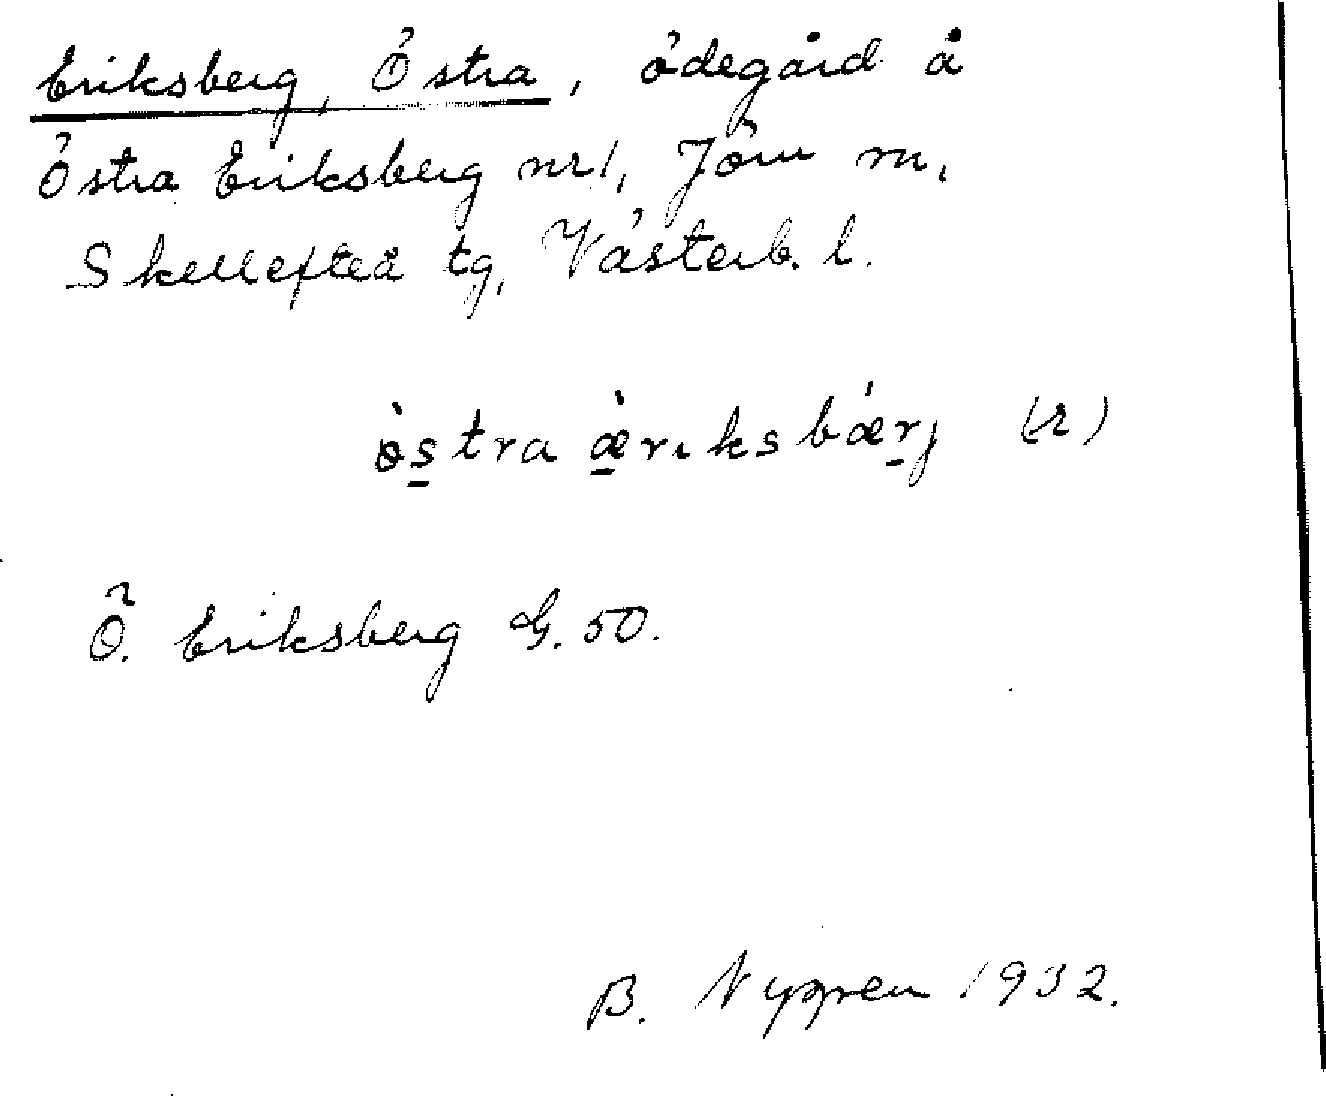 Eriksberg, Östra, ödegård å
Östra Eriksberg nr 1, Jörn sn,
Skellefteå tg, Västerb. l.
östra æriksbærj (r)
Ö. Eriksberg G. 50.
B. Nygren 1932.